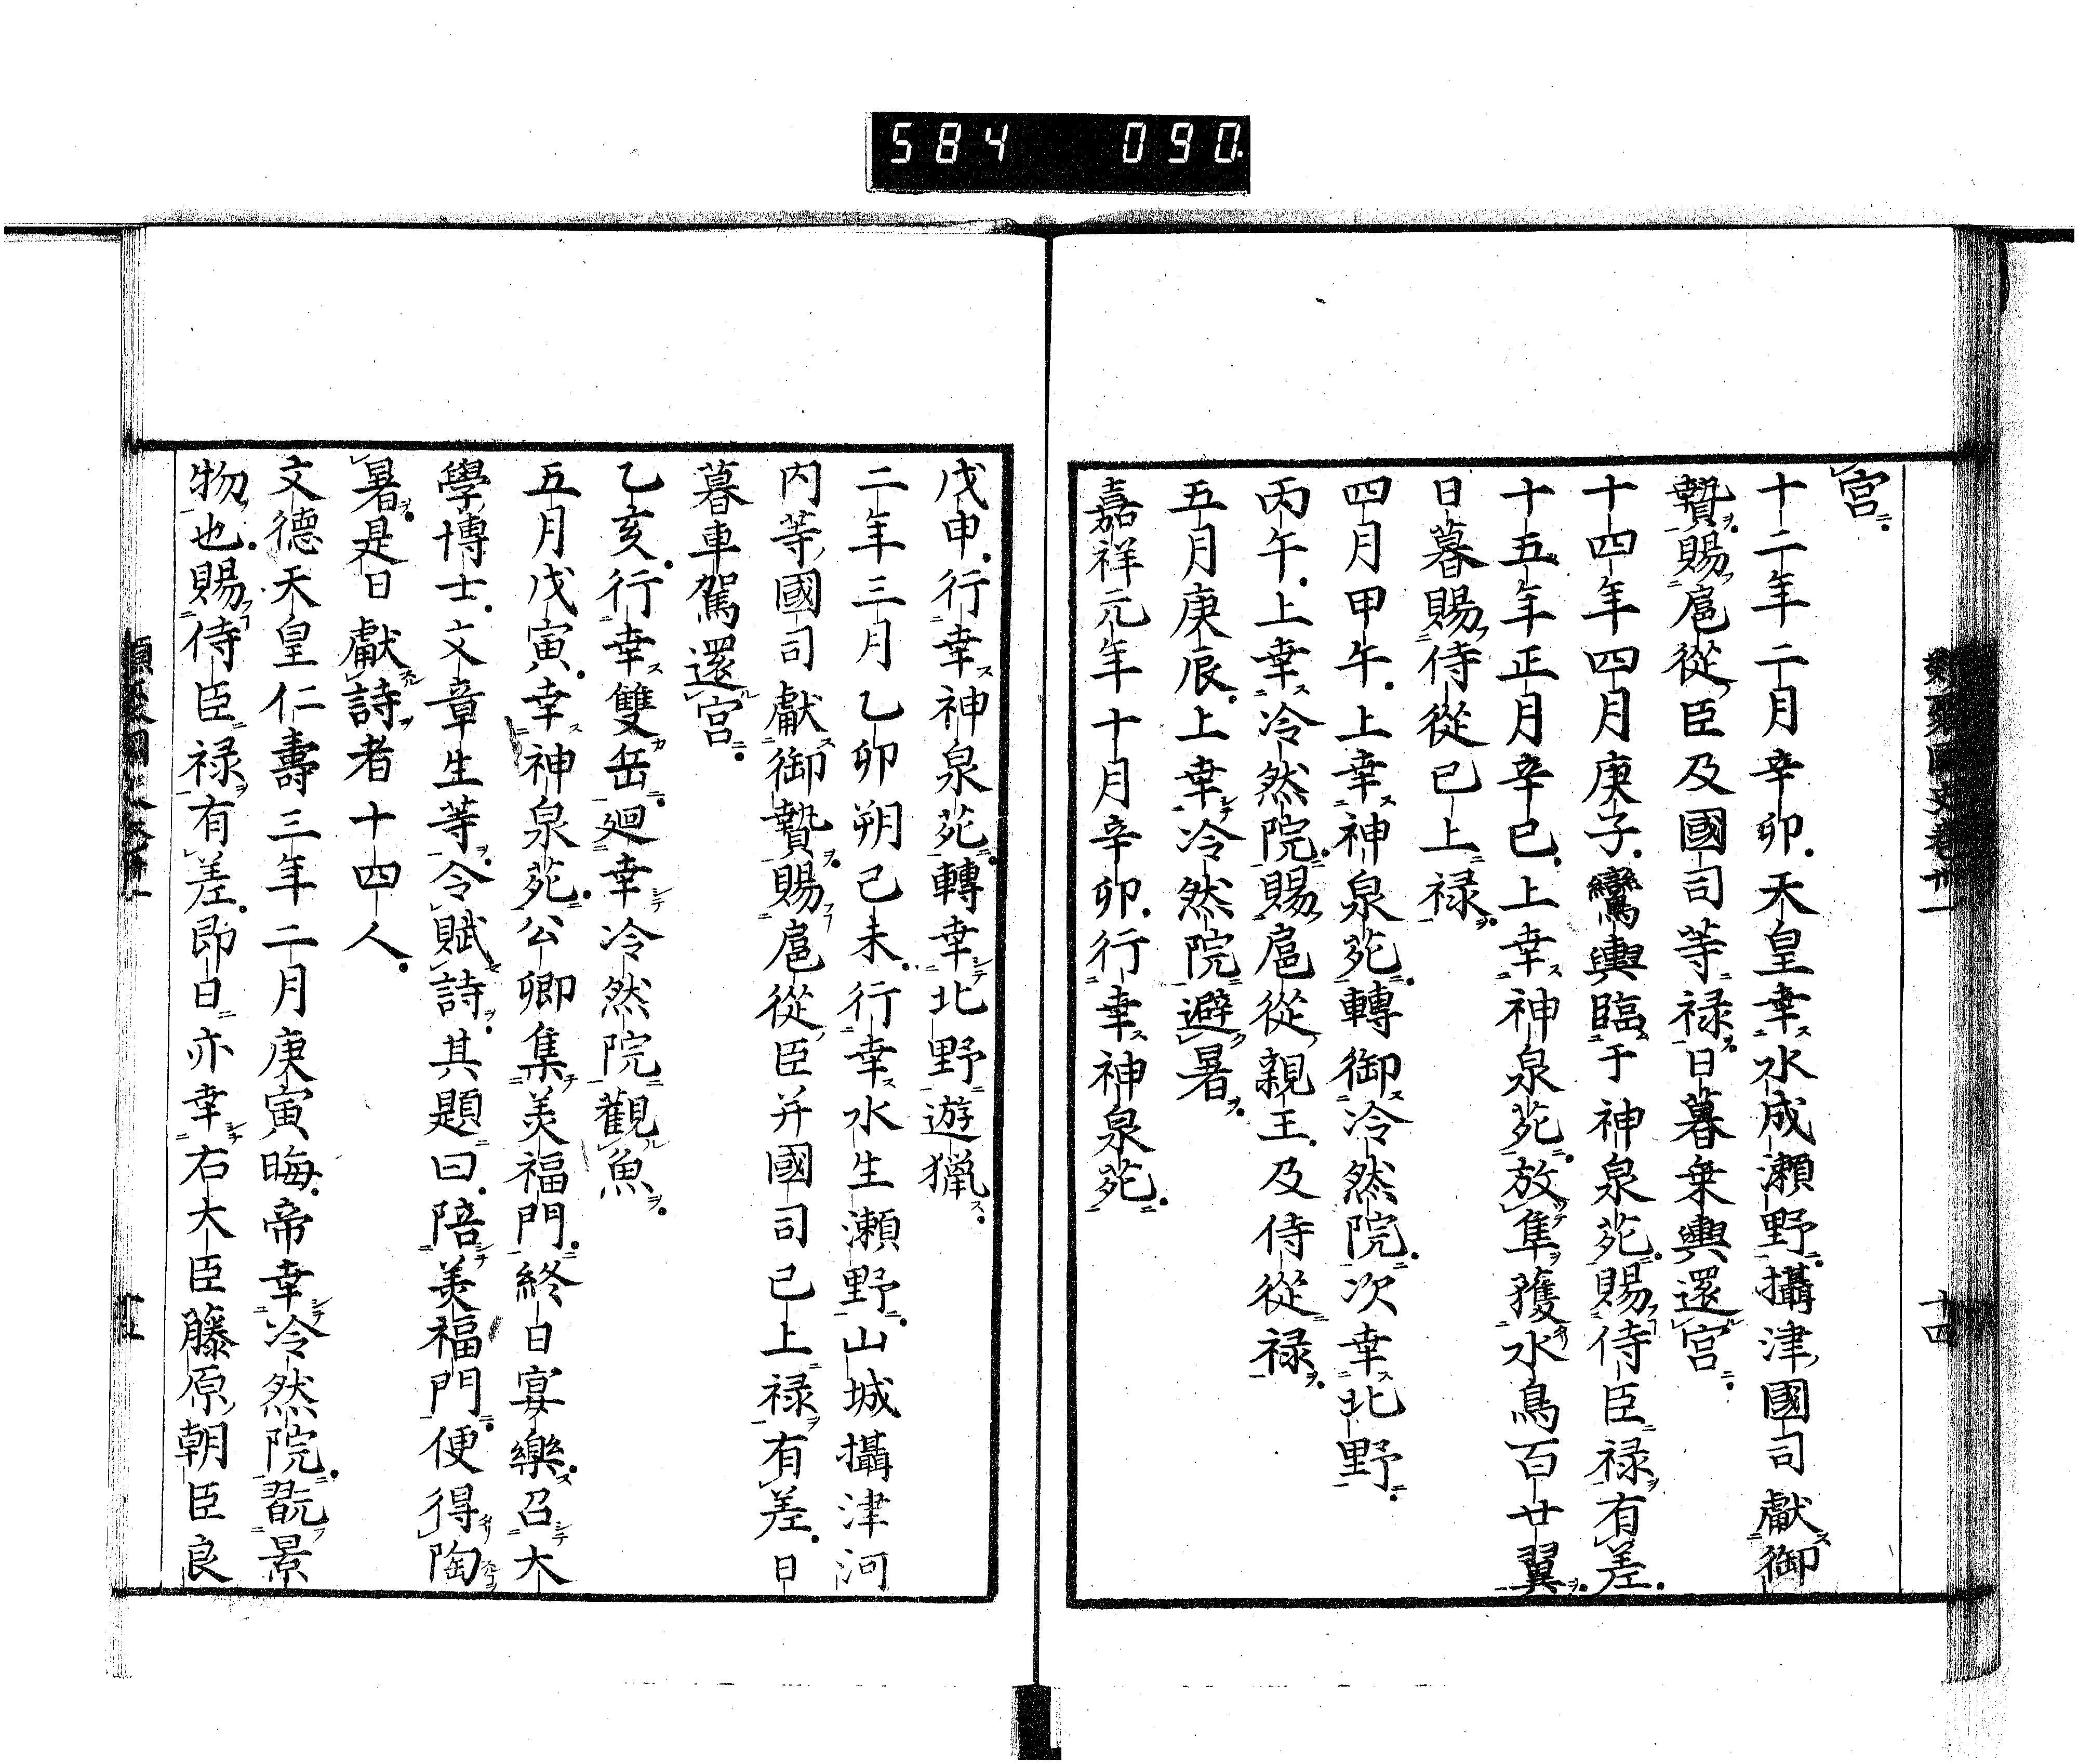 584 090
類聚國史卷卅一
十四
宮
十二年二月辛卯天皇幸水成瀬野攝津國司獻御
贄賜扈從臣及國司等禄日暮乗輿還宮
十四年四月庚子鸞輿臨于神泉苑賜侍臣禄有差
十五年正月辛巳上幸神泉苑放隼獲水鳥百廿翼
日暮賜侍從已上禄
四月甲午上幸神泉苑轉御冷然院次幸北野
丙午上幸冷然院賜扈從親王及侍從禄
五月庚辰上幸冷然院避暑
嘉祥元年十月辛卯行幸神泉苑
戊申行幸神泉苑轉幸北野遊獵
二年三月乙卯朔己未行幸水生瀬野山城攝津河
内等國司獻御贄賜扈從臣并國司已上禄有差日
暮車駕還宮
乙亥行幸雙岳廻幸冷然院觀魚
五月戊寅幸神泉苑公卿集美福門終日宴樂召大
學博士文章生等令賦詩其題曰陪美福門便得陶
暑是日獻詩者十四人
文德天皇仁壽三年二月庚寅晦帝幸冷然院翫景
物也賜侍臣禄有差即日亦幸右大臣藤原朝臣良